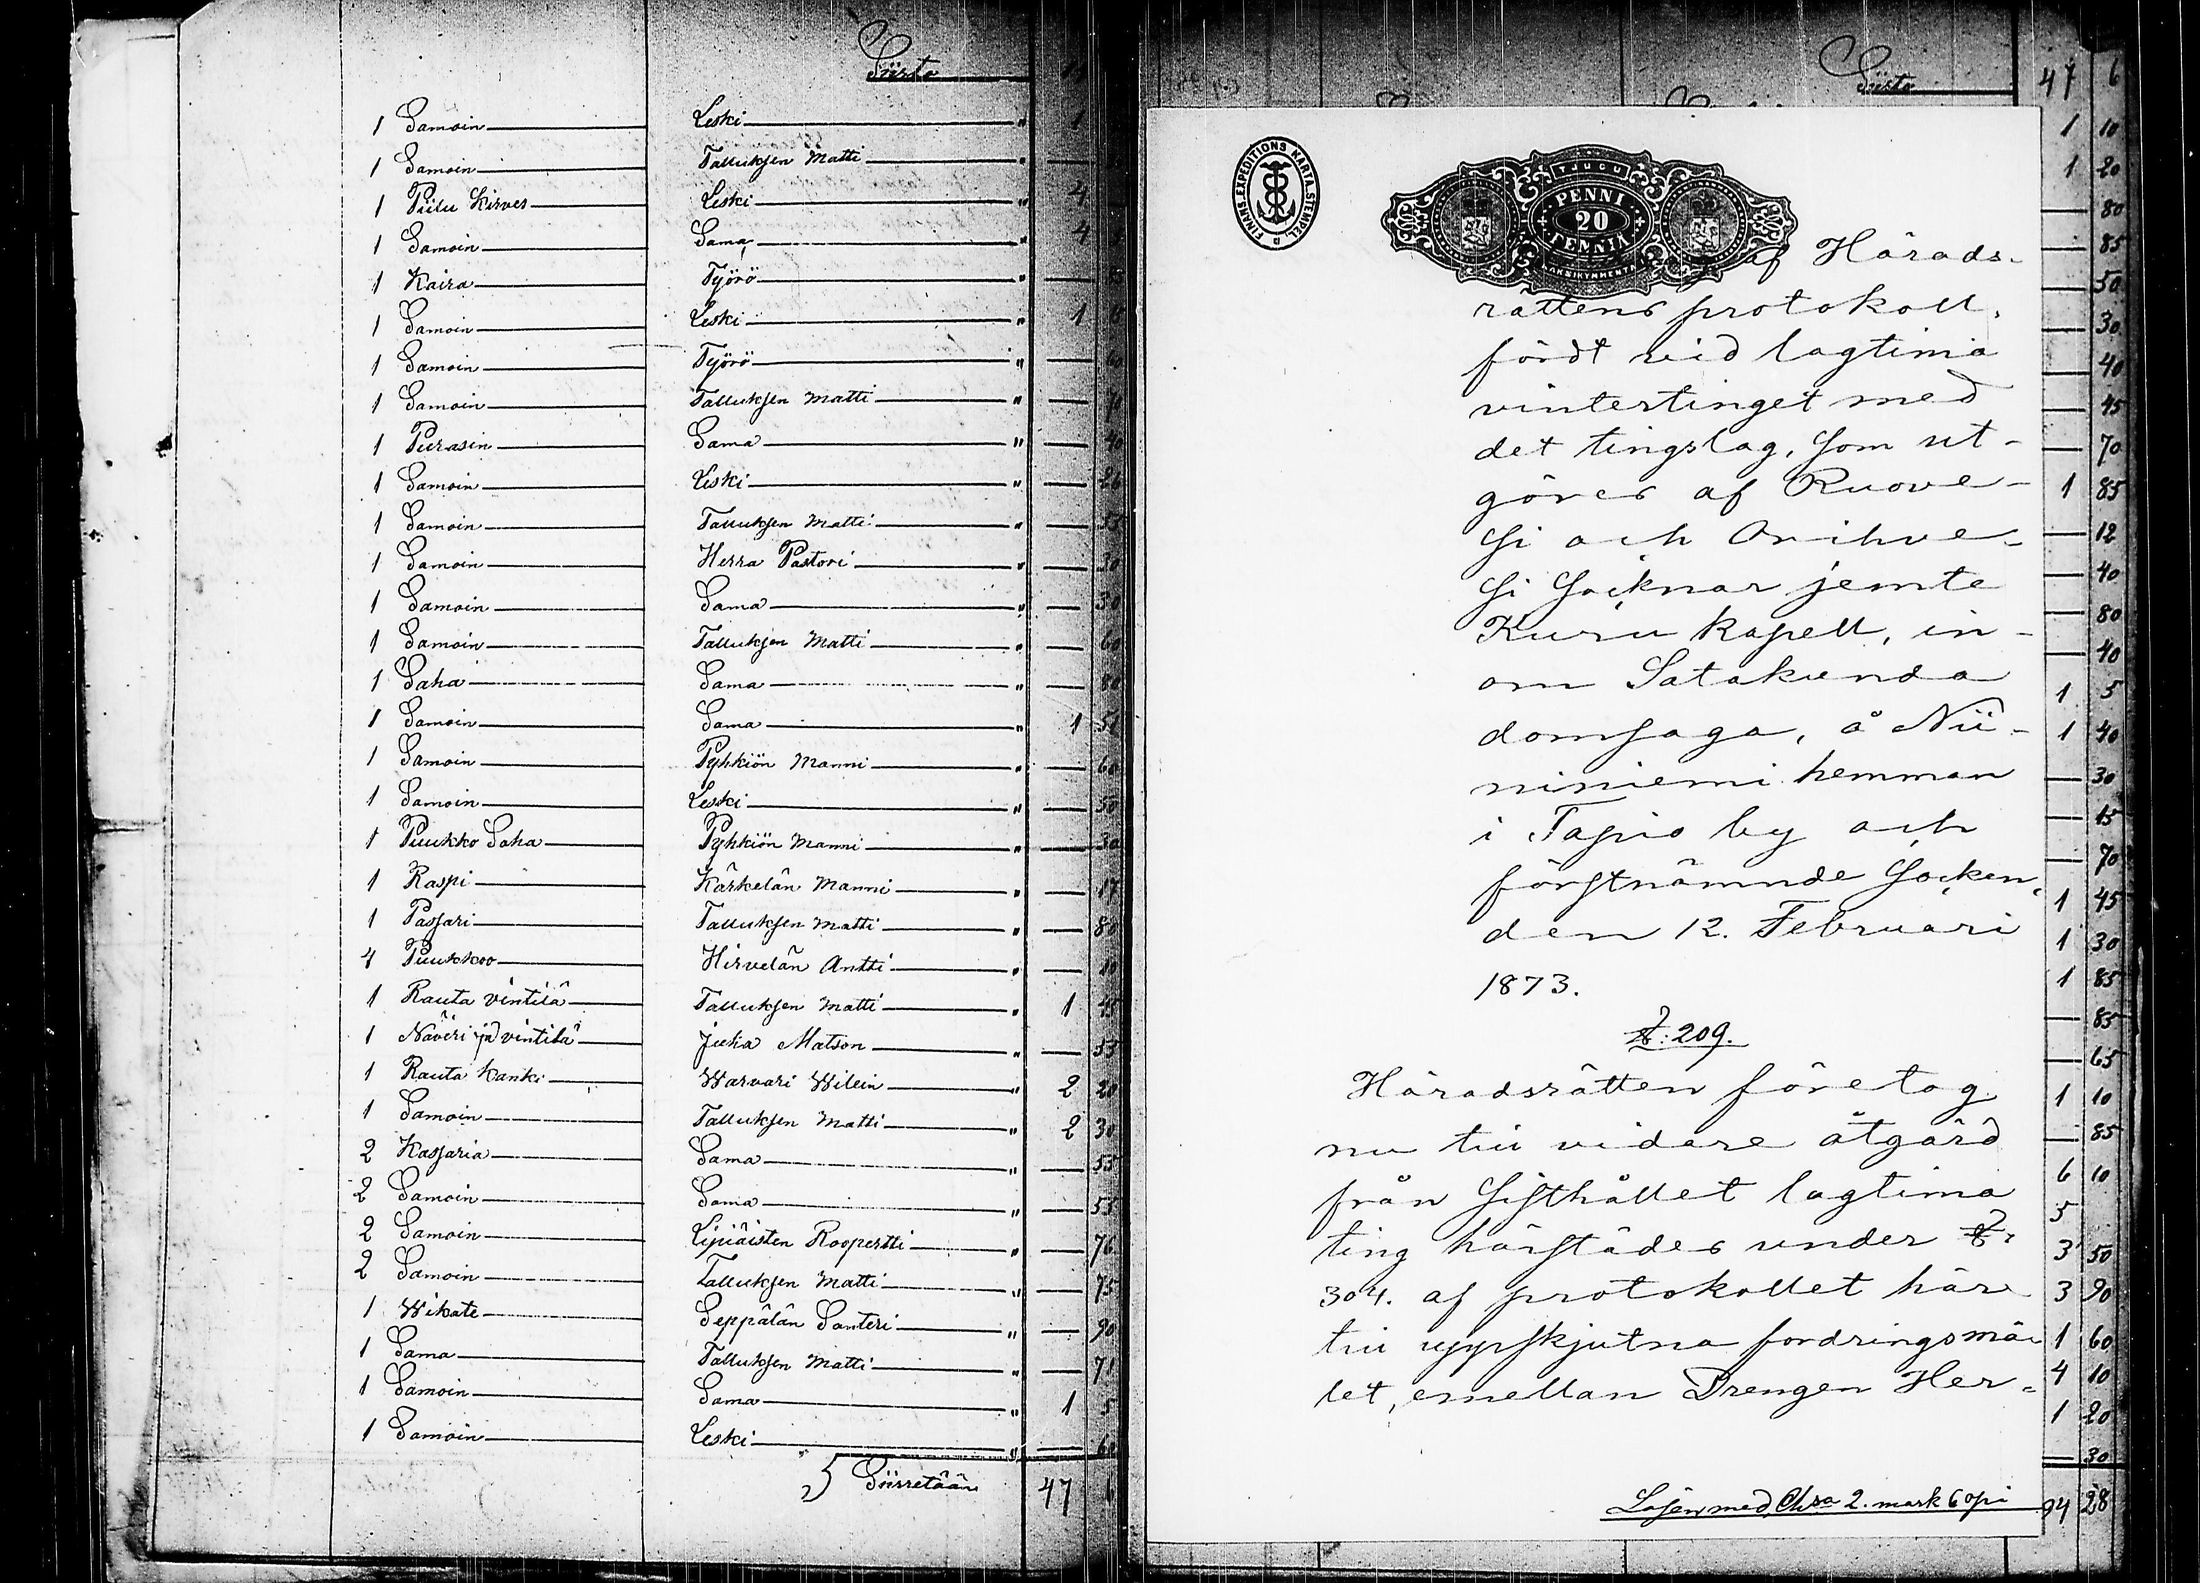 Siirto
1 Samoin Leski " 1
1 Samoin Talluksen Matti " —
1 Piilu Kirves Leski " 4
1 Samoin Sama " 4
1 Kaira Työrö " —
1 Samoin Leski " 1
1 Samoin Työrö " — 60
1 Samoin Talluksen Matti " —
1 Purasin Sama " — 40
1 Samoin Leski " — 26
1 Samoin Talluksen Matti " — 55
1 Samoin Herra Pastori " — 30
1 Samoin Sama " — 30
1 Samoin Talluksen Matti " — 60
1 Saha Sama " — 80
1 Samoin Sama " 1 51
1 Samoin Pyhkiön Manni " — 60
1 Samoin Leski " — 50
1 Puukko Saha Pyhkiön Manni " — 30
1 Raspi Kärkelän Manni " — 17
1 Passari Talluksen Matti " — 80
4 Puukkoo Hirvelän Antti " — 10
1 Rauta vintilä Talluksen Matti " 1 45
1 Näveri ja vintilä Juha Matson " — 55
1 Rauta Kanki Warvari Wilein " 2 20
1 Samoin Talluksen Matti " 2 30
2 Kassaria Sama " — 55
2 Samoin Sama " — 55
2 Samoin Lipiäisten Roopertti " — 76
2 Samoin Talluksen Matti " — 75
1 Wikate Seppälän Santeri " — 90
1 Sama Talluksen Matti " — 71
1 Samoin Sama " 1 5
1 Samoin Leski " — 60
Siirretään 47 6
FINANS.EXPEDITIONS KARTA.STEMPEL.
TJUGU
PENNI
20
PENNIÄ
KAKSIKYMMENTÄ
af Härads-
rättens protokoll,
fördt vid lagtima
vintertinget med
det tingslag, som ut-
göres af Ruove-
si och Orihve-
si Socknar jemte
Kuru kapell, in-
om Satakunda
domsaga, å Nii-
niniemi hemman
i Tapio by och
förstnämnde Socken,
den 12. Februari
1873.
№: 209.
Häradsrätten företog
nu till vidare åtgärd
från sisthållet lagtima
ting härstädes under №:
304. af protokollet här
till uppskjutna fordringsmå-
let, emellan Drengen Her-
Lösen med Ch:sa 2. mark 60 pi
Siirto 47 6
1 10
1 20
— 80
— 85
— 50
— 30
— 40
— 45
— 70
1 85
— 12
— 40
— 80
— 40
1 5
1 40
— 30
— 15
— 70
1 45
1 30
1 85
— 85
— 65
1 10
— 85
6 10
5
3 50
3 90
1 60
4 10
1 20
— 30
94 28